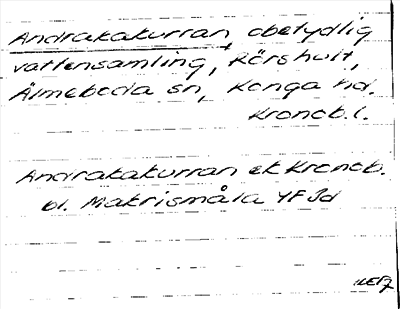 Andrakakurran, obetydlig
vattensamling, Rörshult,
Älmeboda sn, Konga hd.
Kronob. l.
Andrakakurran ek Kronob.
bl. Makrismåla YF Jd